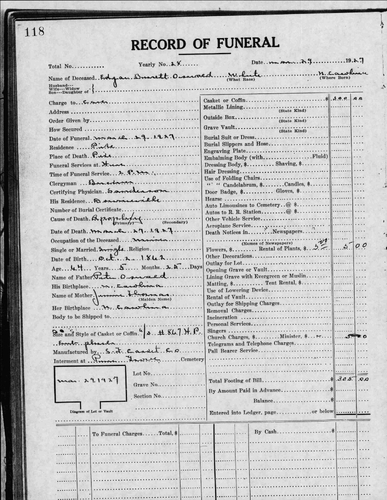 118
RECORD OF FUNERAL
Total No. Yearly No. 24 Date 29 1927
Name of Deceased Edgar Oswald White N. Carolina
(What Race) (Where Born)
Husband
Wife—Widow
Son—Daughter of
Charge to
Address
Order Given by
How Secured
Date of Funeral March 29, 1927
Residence
Place of Death
Funeral Services at
Time of Service 2 P.M.
Clergyman
Certifying Physician
His Residence
Number of Burial Certificate
Cause of Death Apoplexy
(Primary) (Secondary)
Date of Death March 27, 1927
Occupation of the Deceased
Single or Married Single Religion
Date of Birth Oct 2 1862
Age 64 Years 5 Months 25 Days
Name of Father Oswald
His Birthplace N. Carolina
Name of Mother Thomas
(Maiden Name)
Her Birthplace N. Carolina
Body to be Shipped to
Size and Style of Casket or Coffin
Manufactured by Casket Co
Interment at Cemetery
Lot No.
Grave No.
Section No.
Mar. 29 1927
Diagram of Lot or Vault
Casket or Coffin $ 300 00
Metallic Lining
(State Kind)
Outside Box
(State Kind)
Grave Vault
(State Kind)
Burial Suit or Dress
Burial Slippers and Hose
Engraving Plate
Embalming Body (with Fluid)
Dressing Body, $ Shaving, $
Hair Dressing
Use of Folding Chairs
" " Candelabrum, $ Candles, $
Door Badge, $ Gloves, $
Hearse
Auto Limousines to Cemetery @ $
Autos to R. R. Station @ $
Other Vehicle Service
Aeroplane Service
Death Notices in Newspapers
(Names of Newspapers)
Flowers, $ Rental of Plants, $ 5 00
Other Decorations
Outlay for Lot
Opening Grave or Vault
Lining Grave with Evergreen or Muslin
Matting, $ Tent Rental, $
Use of Lowering Device
Rental of Vault
Outlay for Shipping Charges
Removal Charges
Incineration
Personal Services
Singers
Church Charges, $ Minister, $
Telegrams and Telephone Charges
Pall Bearer Service
Total Footing of Bill $ 305 00
By Amount Paid in Advance
Balance
Entered into Ledger, page or below
To Funeral Charges Total, $ By Cash $